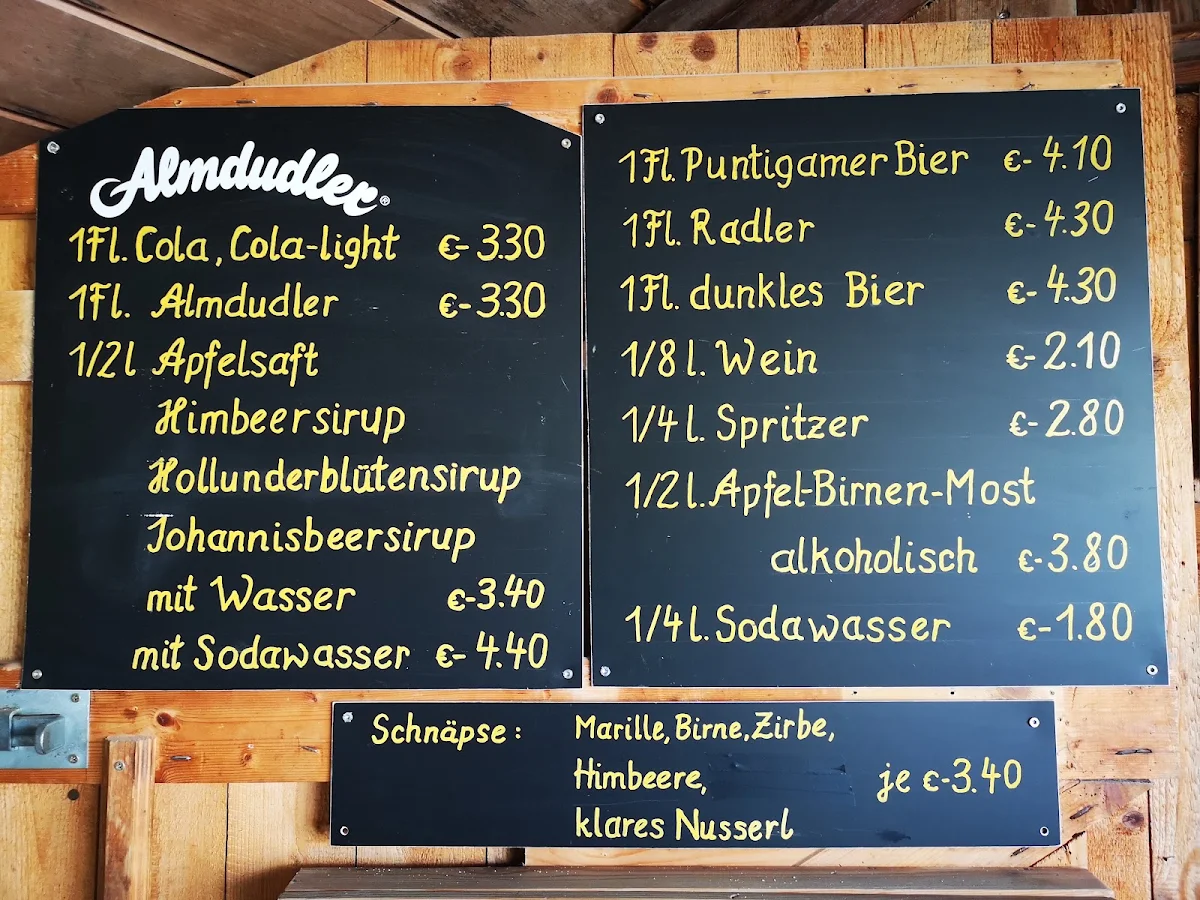 Almdudler®
1Fl. Cola, Cola-light €- 3.30
1Fl. Almdudler €- 3.30
1/2l Apfelsaft
Himbeersirup
Hollunderblütensirup
Johannisbeersirup
mit Wasser €-3.40
mit Sodawasser €- 4.40
1Fl. Puntigamer Bier €- 4.10
1Fl. Radler €- 4.30
1Fl. dunkles Bier €- 4.30
1/8 l. Wein €- 2.10
1/4 l. Spritzer €- 2.80
1/2 l. Apfel-Birnen-Most
alkoholisch €-3.80
1/4 l. Sodawasser €-1.80
Schnäpse: Marille, Birne, Zirbe,
Himbeere, je €-3.40
klares Nusserl